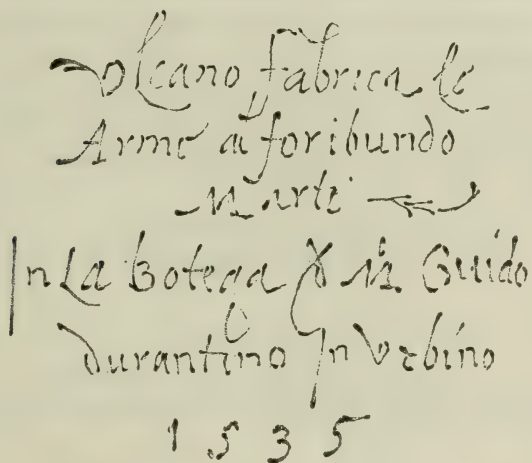 Volcano fabrica le
Arme a foribundo
Marte
In La Botega d M. Guido
durantino In Urbino
1535